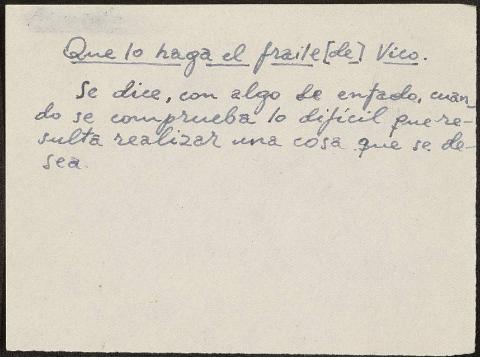 Que lo haga el fraile [de] Vico.
Se dice, con algo de enfado, cuan-
do se comprueba lo difícil que re-
sulta realizar una cosa que se de-
sea.